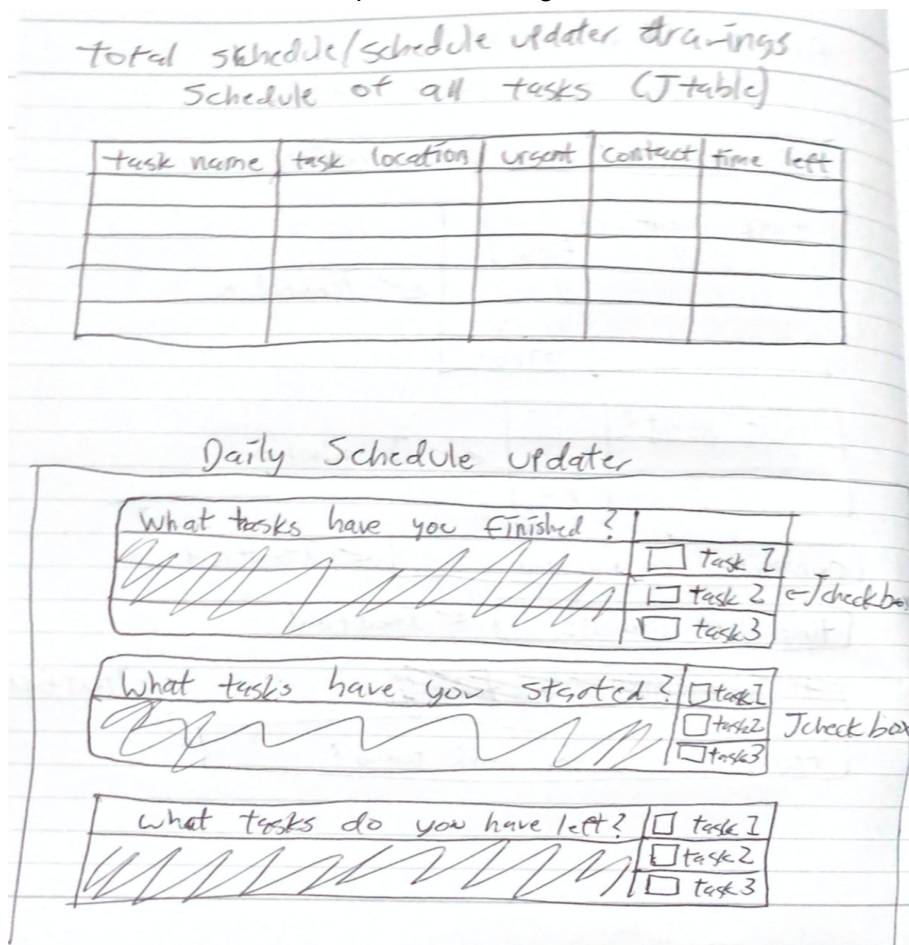 total schedule/schedule updater drawings
Schedule of all tasks (Jtable)
task name task location urgent contact time left
Daily Schedule updater
What tasks have you finished?
task 1
task 2 ←Jcheckbox
task3
What tasks have you started? task1
task2 Jcheckbox
task3
what tasks do you have left? task 1
task2
task3